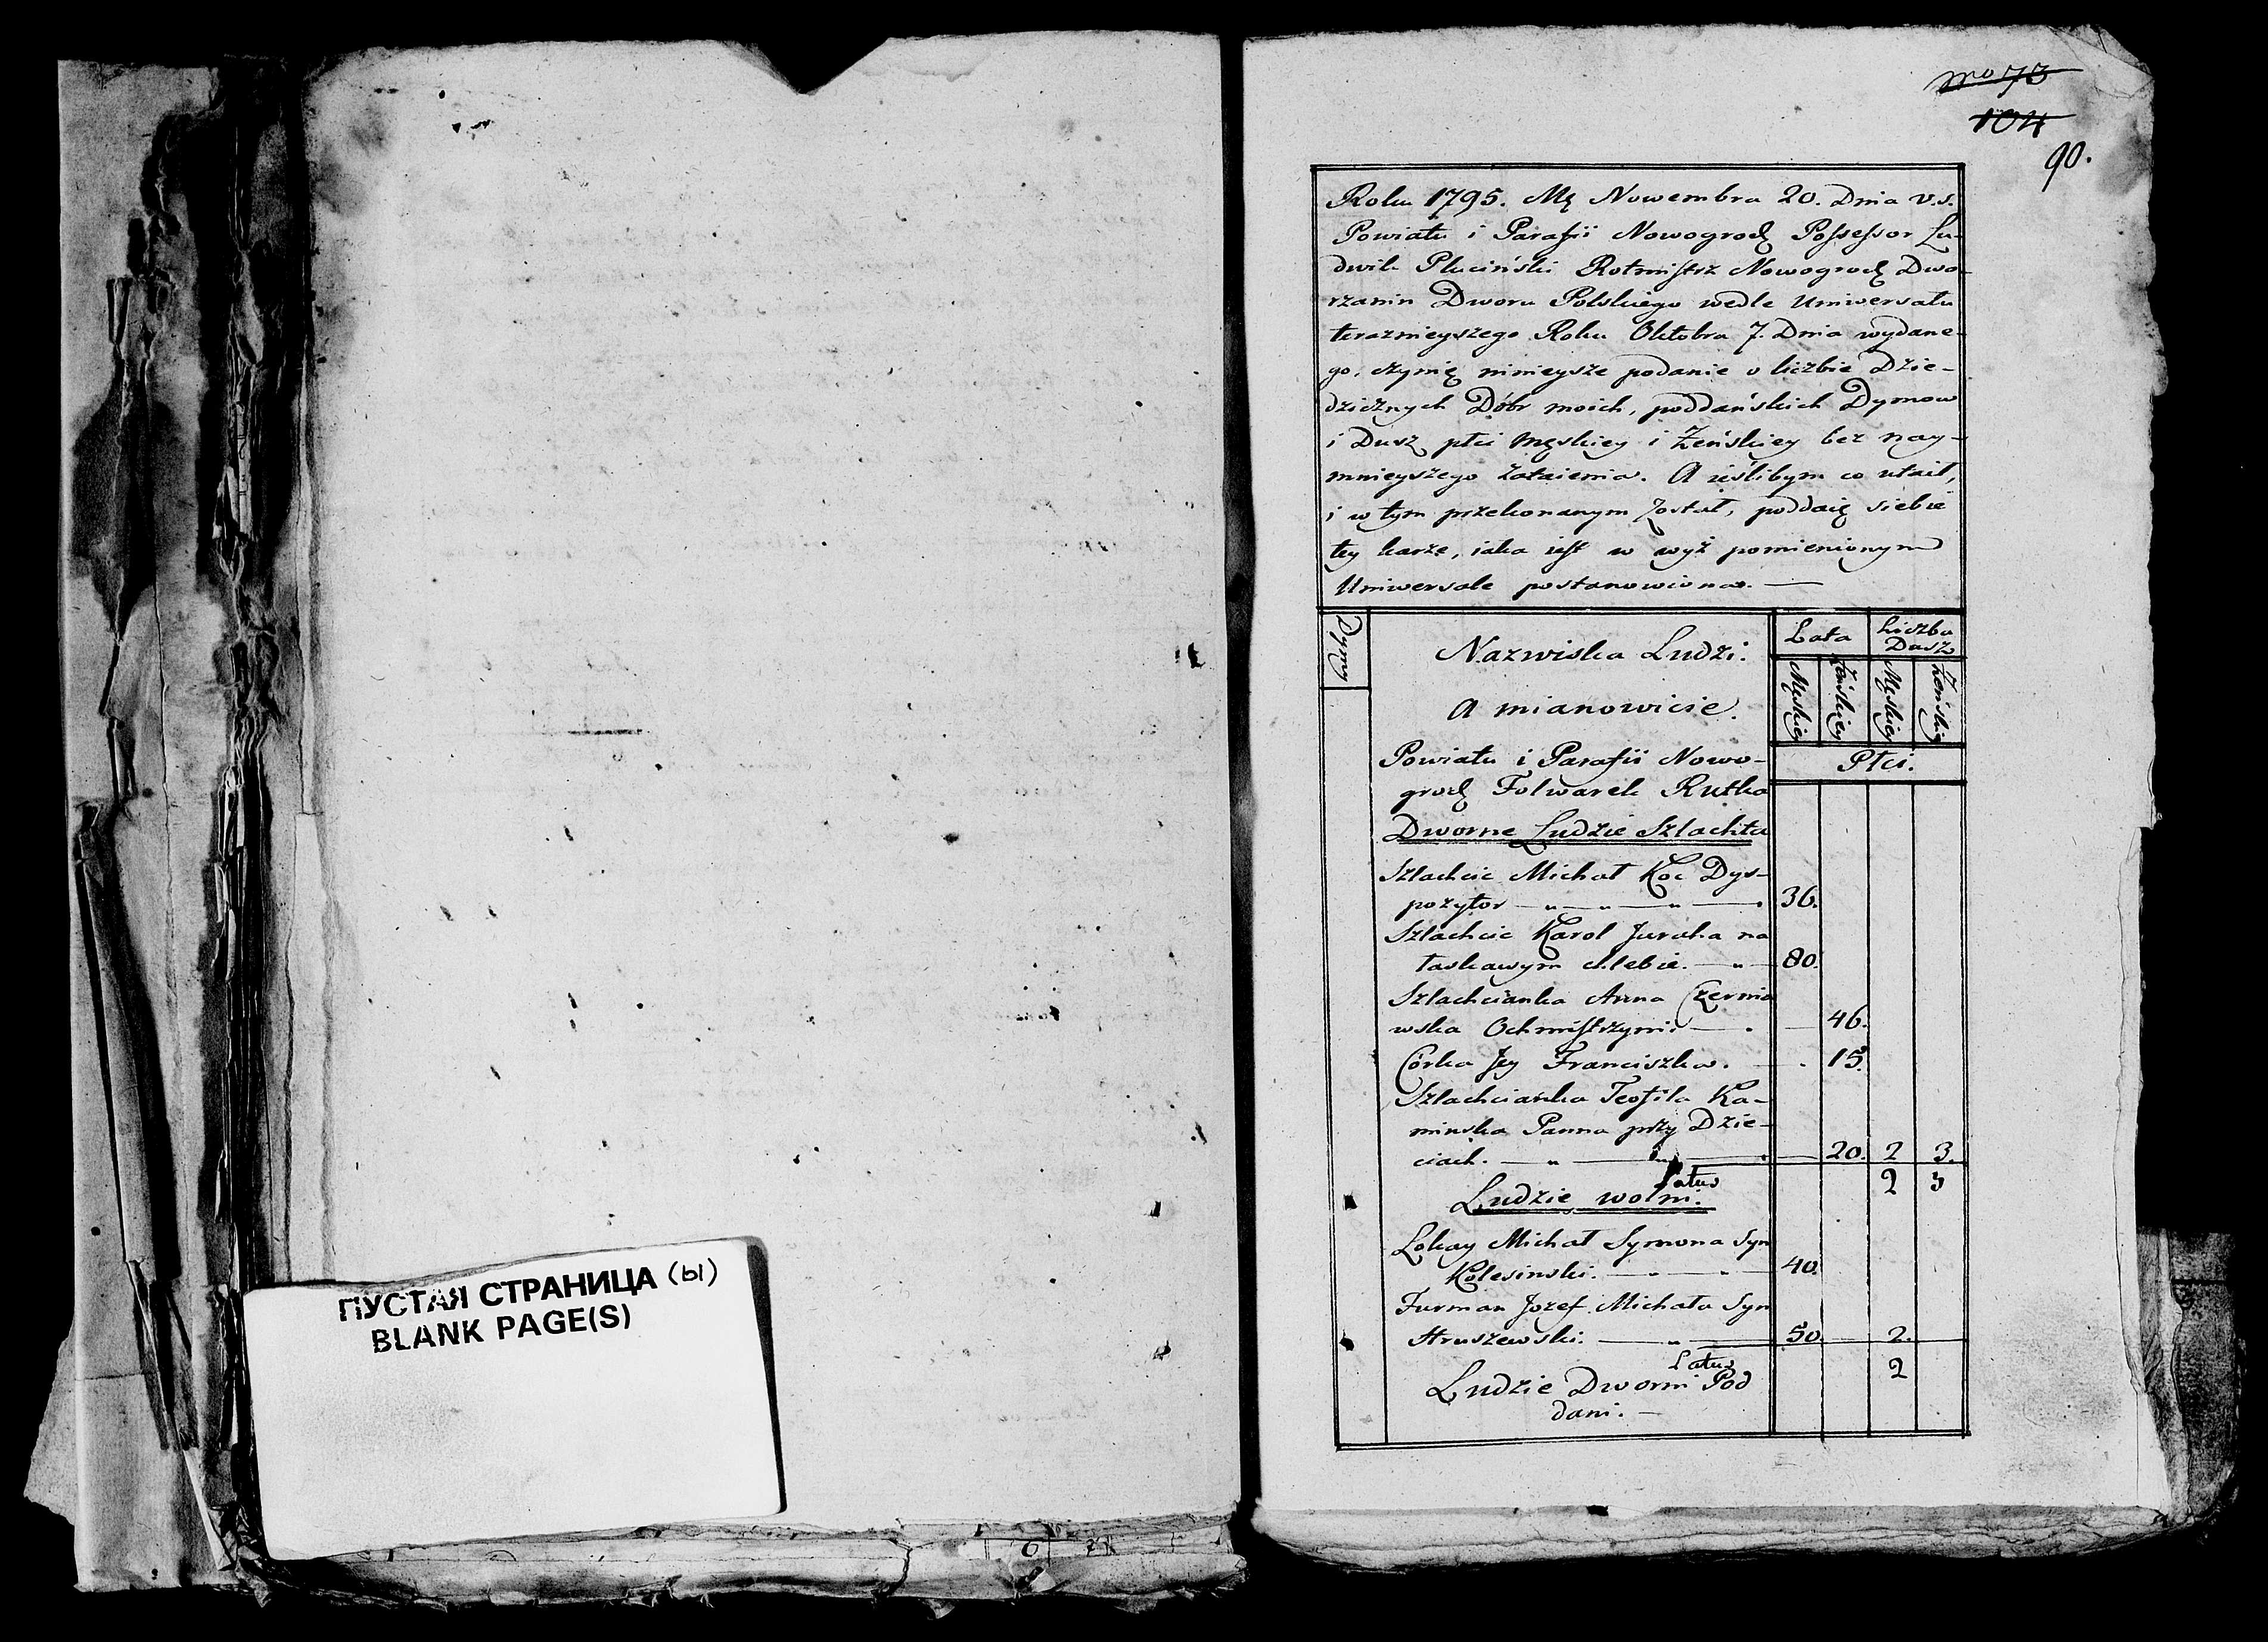 ПУСТАЯ СТРАНИЦА (ы)
BLANK PAGE(S)
104
90.
Roku 1795. Mę Nowembra 20. Dnia v.s.
Powiatu i Parafii Nowogrodz Possessor Lu-
dwik Pluciński Rotmistrz Nowogrodz Dwo-
rzanin Dworu Polskiego wedle Uniwersału
teraznieyszego Roku Oktobra 7. Dnia wydane-
go, czynię ninieysze podanie o liczbie Dzie-
dzicznych Dóbr moich, poddańskich Dymow
i Dusz płci Męskiey i Żeńskiey bez nay-
mnieyszego zataienia. A ieślibym co utaił,
i w tym przekonanym został, poddaię siebie
tey karze, iaka iest w wyż pomienionym
Uniwersale postanowiona. —
Dymy
Nazwiska Ludzi.
A mianowicie.
Lata
Liczba Dusz
Męskiey
Żeńskiey
Męskiey
Żeńskiey
Płci.
Powiatu i Parafii Nowo-
grodz Folwarek Rutka
Dworne Ludzie Szlachta
Szlachcic Michał Koc Dys-
pozytor — " — " — " — 36.
Szlachcic Karol Juraha na
łaskawym chlebie. — " — 80.
Szlachcianka Anna Czernia
wska Ochmistrzyni — . — 46.
Córka Jey Franciszka. — . 15.
Szlachcianka Teofila Ka-
minska Panna przy Dzie-
ciach. — " — " — 20. 2 3.
Latus 2 3
Ludzie wolni.
Lokay Michał Symona Syn
Kolesinski. — " — " — 40.
Furman Jozef Michała Syn
Hruszewski. — " — 50. — 2.
Latus 2
Ludzie Dworni Pod
dani. —